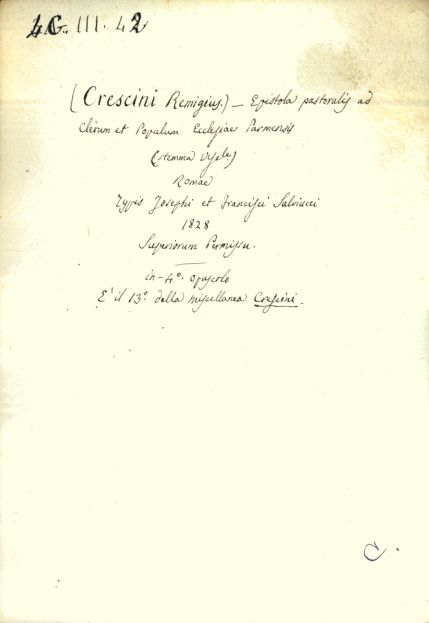 LG. III. 42
(Crescini Remigius.) _ Epistola pastoralis ad
Clerum et Populum Ecclesiae Parmensis
(stemma
Romae
Typis Josephi et Francisci Salviucci
1828
Superiorum Permissu.
in-4°. opuscolo
E' il 13° della miscellanea Crescini.
C.